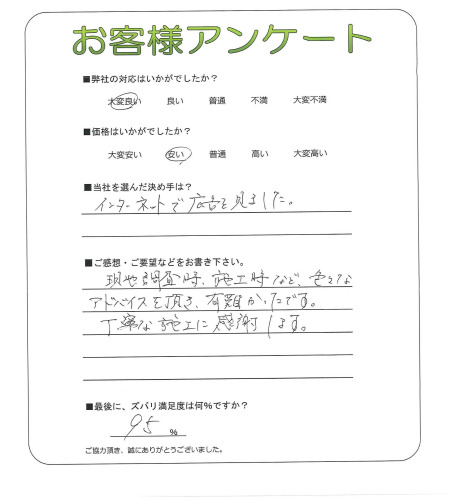 お客様アンケート
■弊社の対応はいかがでしたか?
大変良い 良い 普通 不満 大変不満
■価格はいかがでしたか?
大変安い 安い 普通 高い 大変高い
■当社を選んだ決め手は?
インターネットで広告を見ました。
■ご感想・ご要望などをお書き下さい。
現地調査時、施工時など、色々な
アドバイスを頂き、有難かったです。
丁寧な施工に感謝します。
■最後に、ズバリ満足度は何%ですか?
95 %
ご協力頂き、誠にありがとうございました。